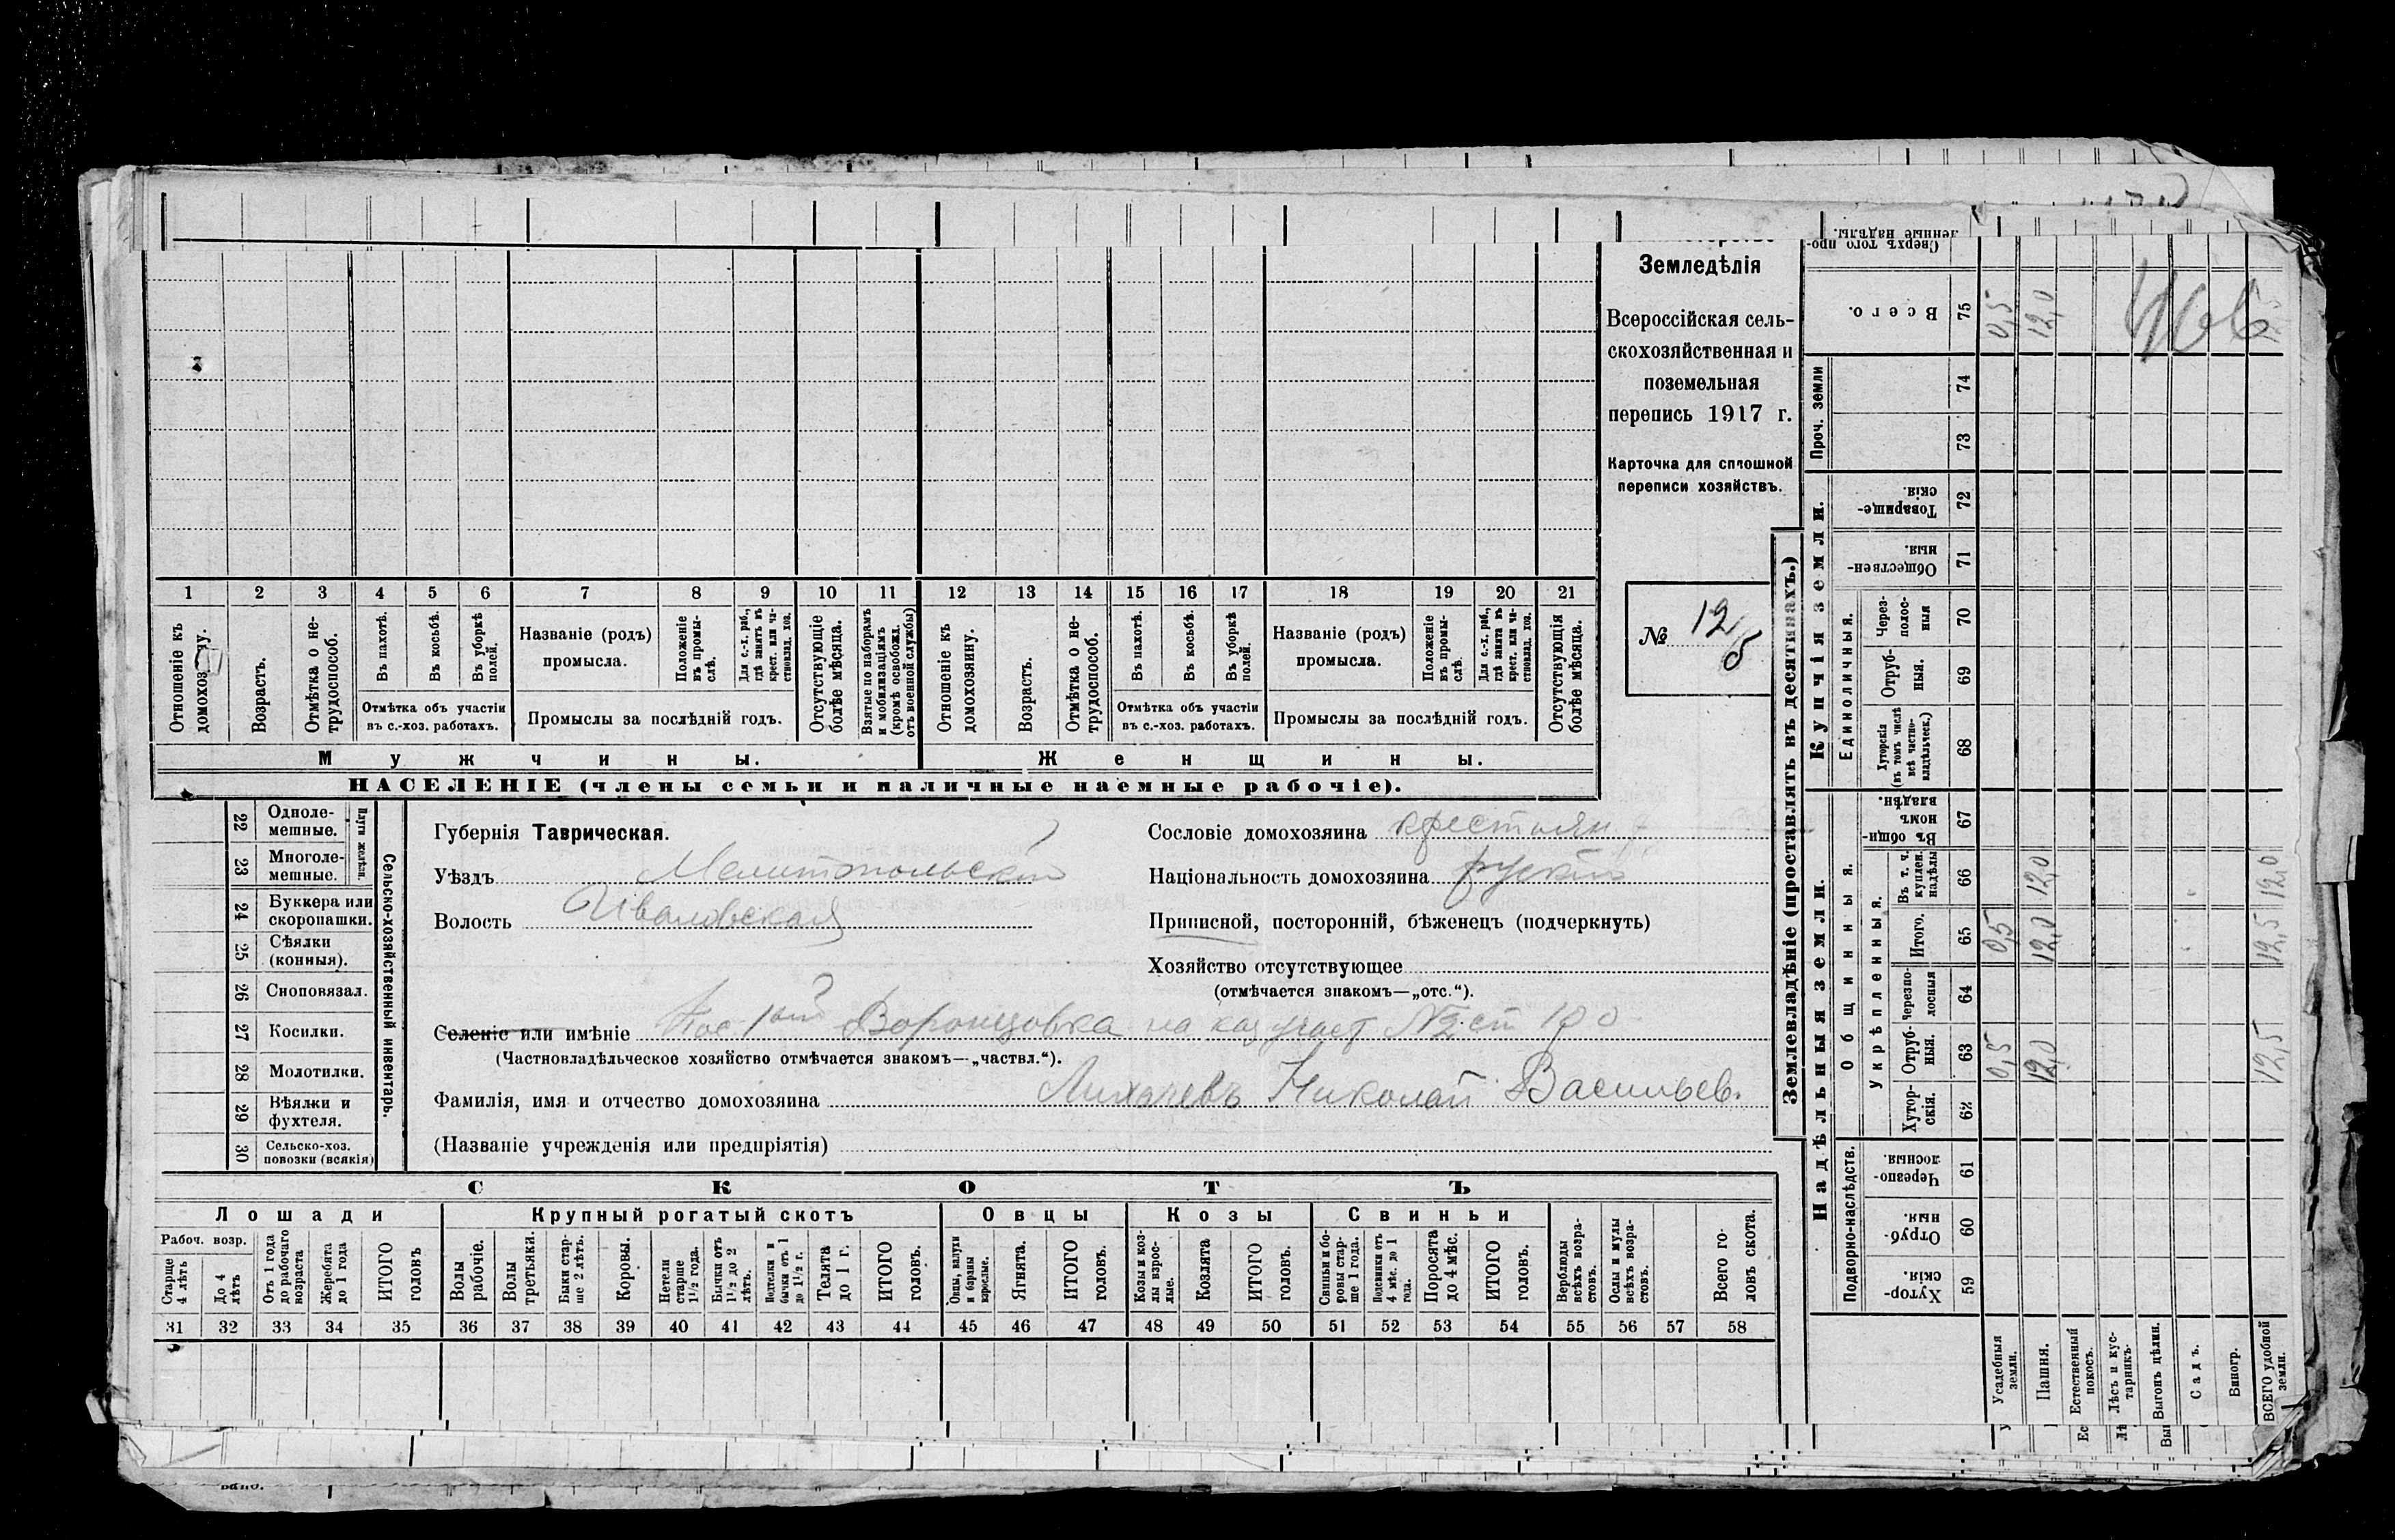 Земледѣлія
Всероссійская сель-
скохозяйственная и
поземельная
перепись 1917 г.
Карточка для сплошной
переписи хозяйствъ.
№ 12
5
1 2 3 4 5 6 7 8 9 10 11 12 13 14 15 16 17 18 19 20 21
Отношеніе къ
домохоз ну.
Возрастъ.
Отмѣтка о не-
трудоспособ.
Въ пахотѣ.
Въ косьбѣ.
Въ уборкѣ
полей.
Отмѣтка объ участіи
въ с.-хоз. работахъ.
Названіе (родъ)
промысла.
Положеніе
въ промы-
слѣ.
Для с.-х. раб.,
гдѣ занятъ въ
крест. или ча-
стновлад. хоз.
Промыслы за послѣдній годъ.
Отсутствующіе
болѣе мѣсяца.
Взятые по наборамъ
и мобилизаціямъ
(кромѣ освобожд.
отъ военной службы)
Отношеніе къ
домохозяину.
Возрастъ.
Отмѣтка о не-
трудоспособ.
Въ пахотѣ.
Въ косьбѣ.
Въ уборкѣ
полей.
Отмѣтка объ участіи
въ с.-хоз. работахъ.
Названіе (родъ)
промысла.
Положеніе
въ промы-
слѣ.
Для с.-х. раб.,
гдѣ занята въ
крест. или ча-
стновлад. хоз.
Промыслы за послѣдній годъ.
Отсутствующія
болѣе мѣсяца.
Мужчины.
Женщины.
НАСЕЛЕНІЕ (члены семьи и наличные наемные рабочіе).
22 Одноле-
мешные.
23 Многоле-
мешные.
Плуги желѣзн.
24 Буккера или
скоропашки.
25 Сѣялки
(конныя).
26 Сноповязал.
27 Косилки.
28 Молотилки.
29 Вѣялки и
фухтеля.
30 Сельско-хоз.
повозки (всякія)
Сельско-хозяйственный инвентарь.
Губернія Таврическая.
Уѣздъ Мелитопольскій
Волость Ивановская
Сословіе домохозяина крестьян
Національность домохозяина рускій
Приписной, посторонній, бѣженецъ (подчеркнуть)
Хозяйство отсутствующее
(отмѣчается знакомъ—„отс.“).
Селеніе или имѣніе Пос. 1ый Воронцовка на каз участ №2 ст
(Частновладѣльческое хозяйство отмѣчается знакомъ—„частвл.“).
Фамилія, имя и отчество домохозяина Лихачевъ Николай Васильев.
(Названіе учрежденія или предпріятія)
СКОТЪ
Лошади
Крупный рогатый скотъ
Овцы
Козы
Свиньи
Рабоч. возр.
Старше
4 лѣтъ
До 4
лѣтъ
Отъ 1 года
до рабочаго
возраста
Жеребята
до 1 года
ИТОГО
головъ
Волы
рабочіе.
Волы
третьяки.
Быки стар-
ше 2 лѣтъ.
Коровы.
Нетели
старше
1½ года.
Бычки отъ
1½ до 2
лѣтъ.
Подтелки и
бычки отъ 1
до 1½ г.
Телята
до 1 г.
ИТОГО
головъ.
Овцы, валухи
и бараны
взрослые.
Ягнята.
ИТОГО
головъ.
Козы и коз-
лы взрос-
лые.
Козлята
ИТОГО
головъ.
Свиньи и бо-
ровы стар-
ше 1 года.
Подсвинки отъ
4 мѣс. до 1
года.
Поросята
до 4 мѣс.
ИТОГО
головъ.
Верблюды
всѣхъ возра-
стовъ.
Ослы и мулы
всѣхъ возра-
стовъ.
Всего го-
ловъ скота.
31 32 33 34 35 36 37 38 39 40 41 42 43 44 45 46 47 48 49 50 51 52 53 54 55 56 57 58
Землевладѣніе (проставлять въ десятинахъ.)
Надѣльныя земли.
Купчія земли.
Проч. земли
Подворно-наслѣдств.
Общинныя.
Укрѣпленныя.
Единоличныя.
Хутор-
скія.
59
Отруб-
ныя.
60
Черезпо-
лосныя.
61
Хутор-
скія.
62
Отруб-
ныя.
63 0,5 12,0 12,5
Черезпо-
лосныя
64
Итого.
65 0,5 12,0 12,5
Въ т. ч.
куплен.
надѣлы
66 12,0 12,0
Въ общин-
номъ
владѣн.
67
Хуторскія
(въ томъ числѣ
всѣ частно-
владѣльческ.)
68
Отруб-
ныя.
69
Через-
полос-
ныя
70
Обществен-
ныя.
71
Товарище-
скія.
72
73
74
Всего.
75 0,5 12,0 12,5
Сверхъ того про-
ленные надѣлы.
Усадебныя
земли.
Пашня.
Естественный
покосъ.
Лѣсъ и кус-
тарникъ.
Выгонъ цѣлин.
Садъ.
Виногр.
ВСЕГО удобной
земли.